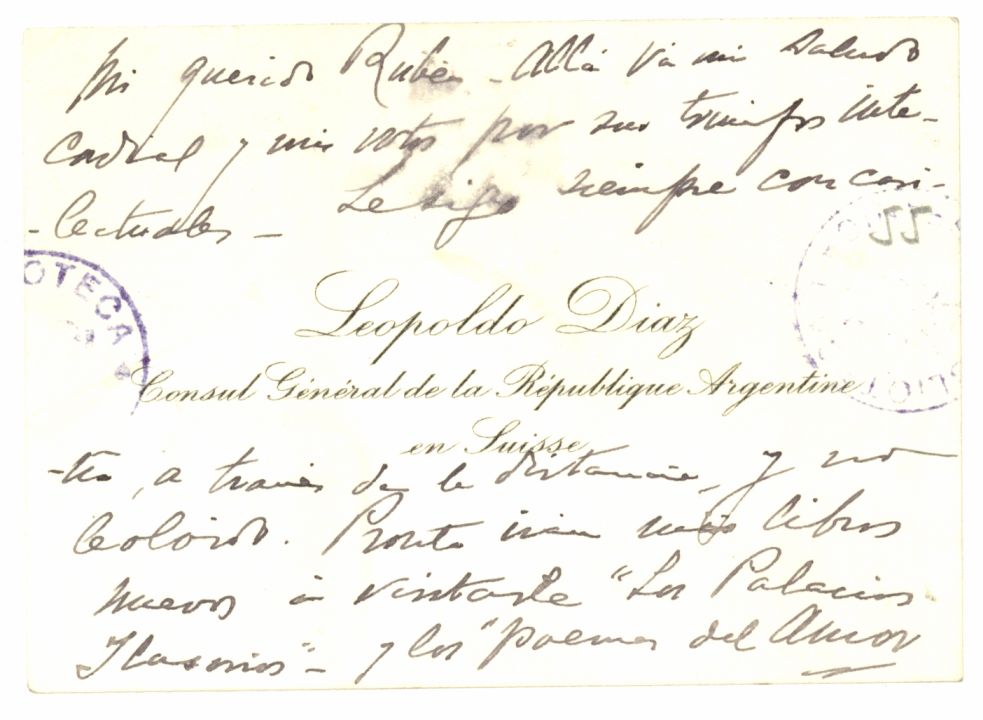 Mi querido Rubén - Allá va mi saludo
cordial y mis votos por sus triunfos inte-
-lectuales - Le sigo siempre con cari-
OTECA
JJ
Leopoldo Diaz
Consul Général de la République Argentine
en Suisse
-ño, a través de la distancia, y no
le olvido. Pronto irán mis libros
nuevos á visitarle "Los Palacios
Ilusorios" - y los "poemas del Amor